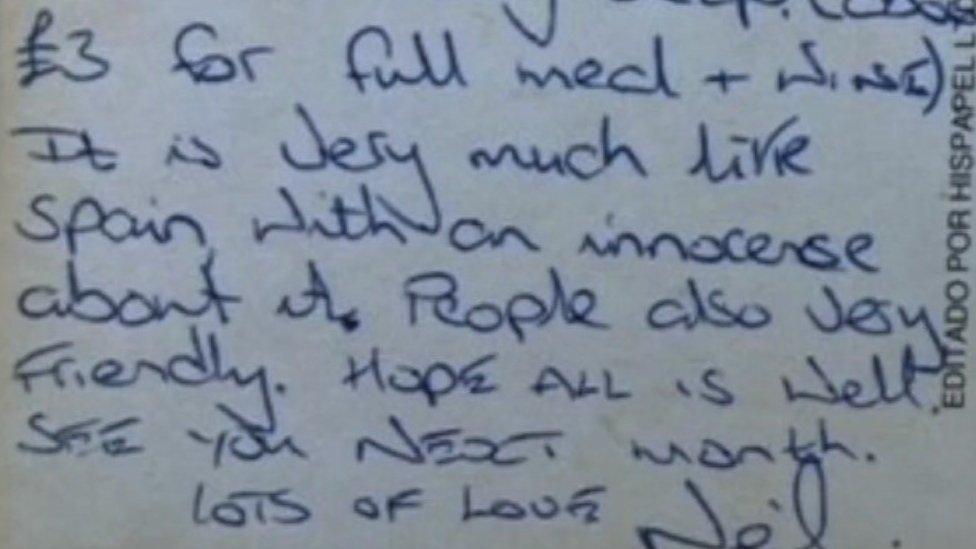 £3 for full meal + WINE)
It is very much like
Spain with an innocense
about it. People also very
Friendly. HOPE ALL is well.
SEE you NEXT month.
LOTS OF LOVE Neil.
EDITADO POR HISPAPEL